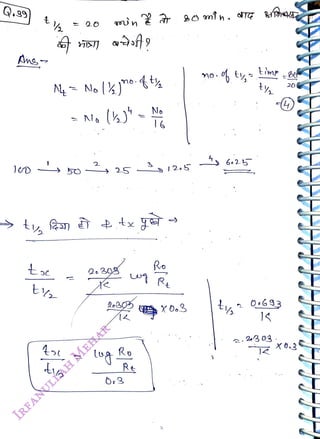 Q.39 t1/2 = 20 min है तो 80 min. बाद अभिकारक
की मात्रा बचेगी?
Ans.-
Nt = No (1/2)^no. of t1/2
no. of t1/2 = time/t1/2 = 80/20
= No (1/2)^4 = No/16
= 4
100 —1→ 50 —2→ 25 —3→ 12.5 —4→ 6.25
→ t1/2 दिया हो & tx पूछे →
tx/t1/2 = 2.303/K log Ro/Rt
2.303/K × 0.3
t1/2 = 0.693/K
= 2.303/K × 0.3
tx/t1/2 = log Ro/Rt / 0.3
IRFANULLAH MEHAR